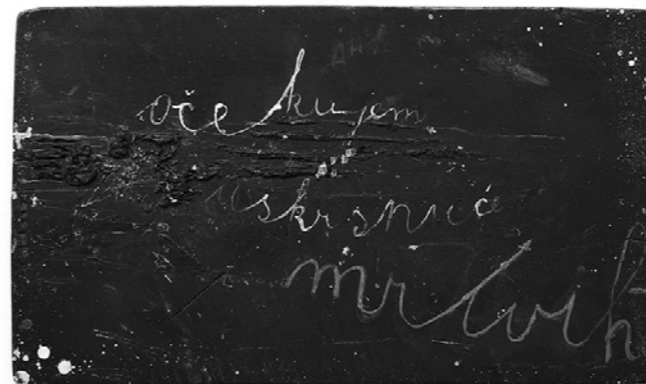 očekujem
uskrsnuće
mrtvih